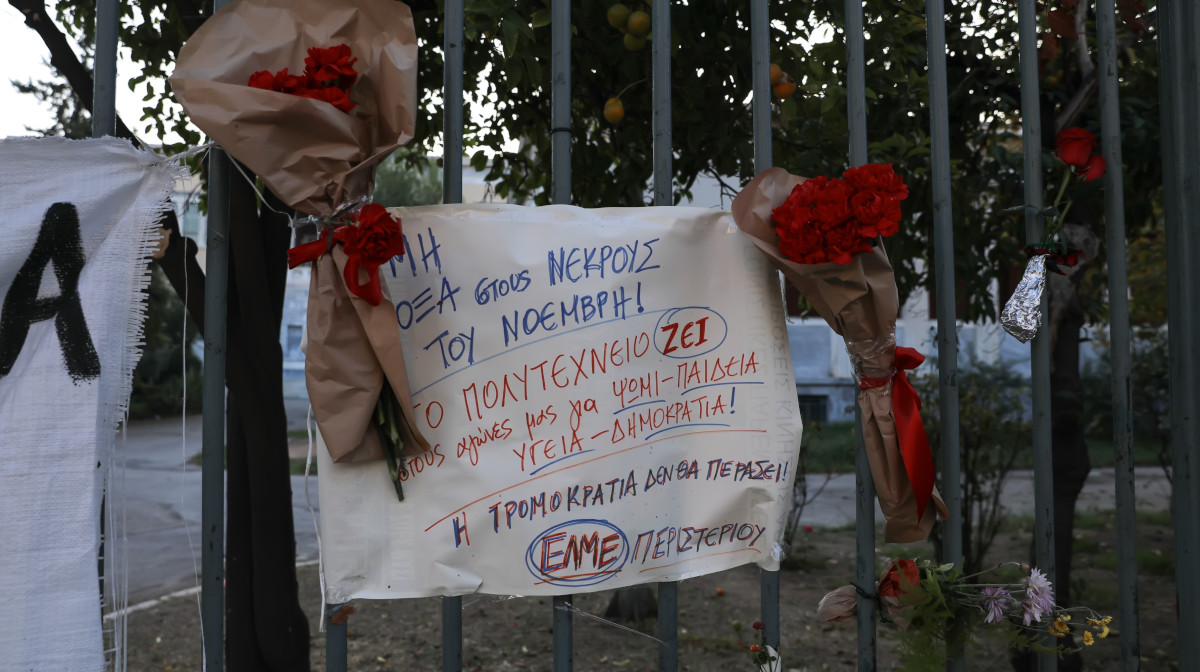 Α
ΜΗ
ΟΞΑ στους ΝΕΚΡΟΥΣ
ΤΟΥ ΝΟΕΜΒΡΗ!
ΤΟ ΠΟΛΥΤΕΧΝΕΙΟ ΖΕΙ
στους αγώνες μας για ΨΩΜΙ-ΠΑΙΔΕΙΑ
ΥΓΕΙΑ-ΔΗΜΟΚΡΑΤΙΑ!
Η ΤΡΟΜΟΚΡΑΤΙΑ ΔΕΝ ΘΑ ΠΕΡΑΣΕΙ!!
ΕΛΜΕ ΠΕΡΙΣΤΕΡΙΟΥ